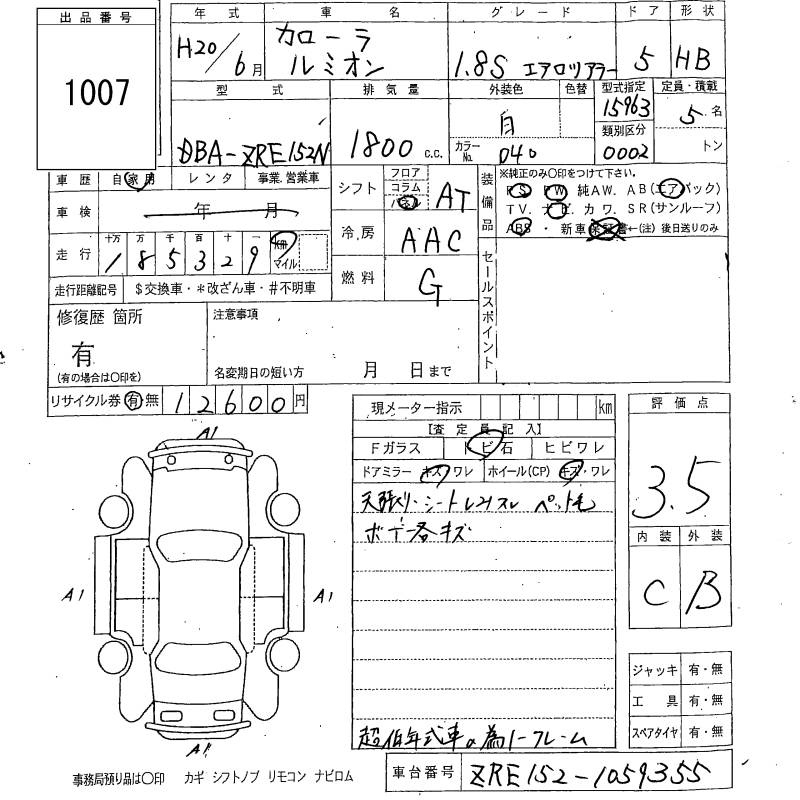 出品番号
1007
年式 車名 グレード ドア 形状
H20/6月 カローラ ルミオン 1.8S エアロツアラー 5 HB
型式 排気量 外装色 色替 型式指定 定員・積載
15963 5名
DBA-ZRE152N 1800 c.c. 白 類別区分
カラーNo. 040 0002 トン
車歴 自家用 レンタ 事業.営業車
車検 年 月
走行 十万 万 千 百 十 一
185329 km マイル
走行距離記号 $交換車・*改ざん車・#不明車
シフト フロア コラム パネル AT
冷房 AAC
燃料 G
装備品
※純正のみ〇印をつけて下さい。
PS PW 純AW. AB(エアバック)
TV. ナビ. カワ. SR(サンルーフ)
ABS ・ 新車保証書←(注) 後日送りのみ
セールスポイント
修復歴 箇所
有
(有の場合は〇印を)
注意事項
名変期日の短い方 月 日まで
リサイクル券 有 無 12600円
現メーター指示 km
【査定員記入】
Fガラス トビ石 ヒビワレ
ドアミラー キズ・ワレ ホイール(CP) キズ・ワレ
天張り・シート ペット毛
ボデー各キズ
超低年式車の為ノークレーム
評価点
3.5
内装 外装
C B
ジャッキ 有・無
工具 有・無
スペアタイヤ 有・無
A1
A1 A1
A1
事務局預り品は〇印 カギ シフトノブ リモコン ナビロム
車台番号 ZRE152-1059355